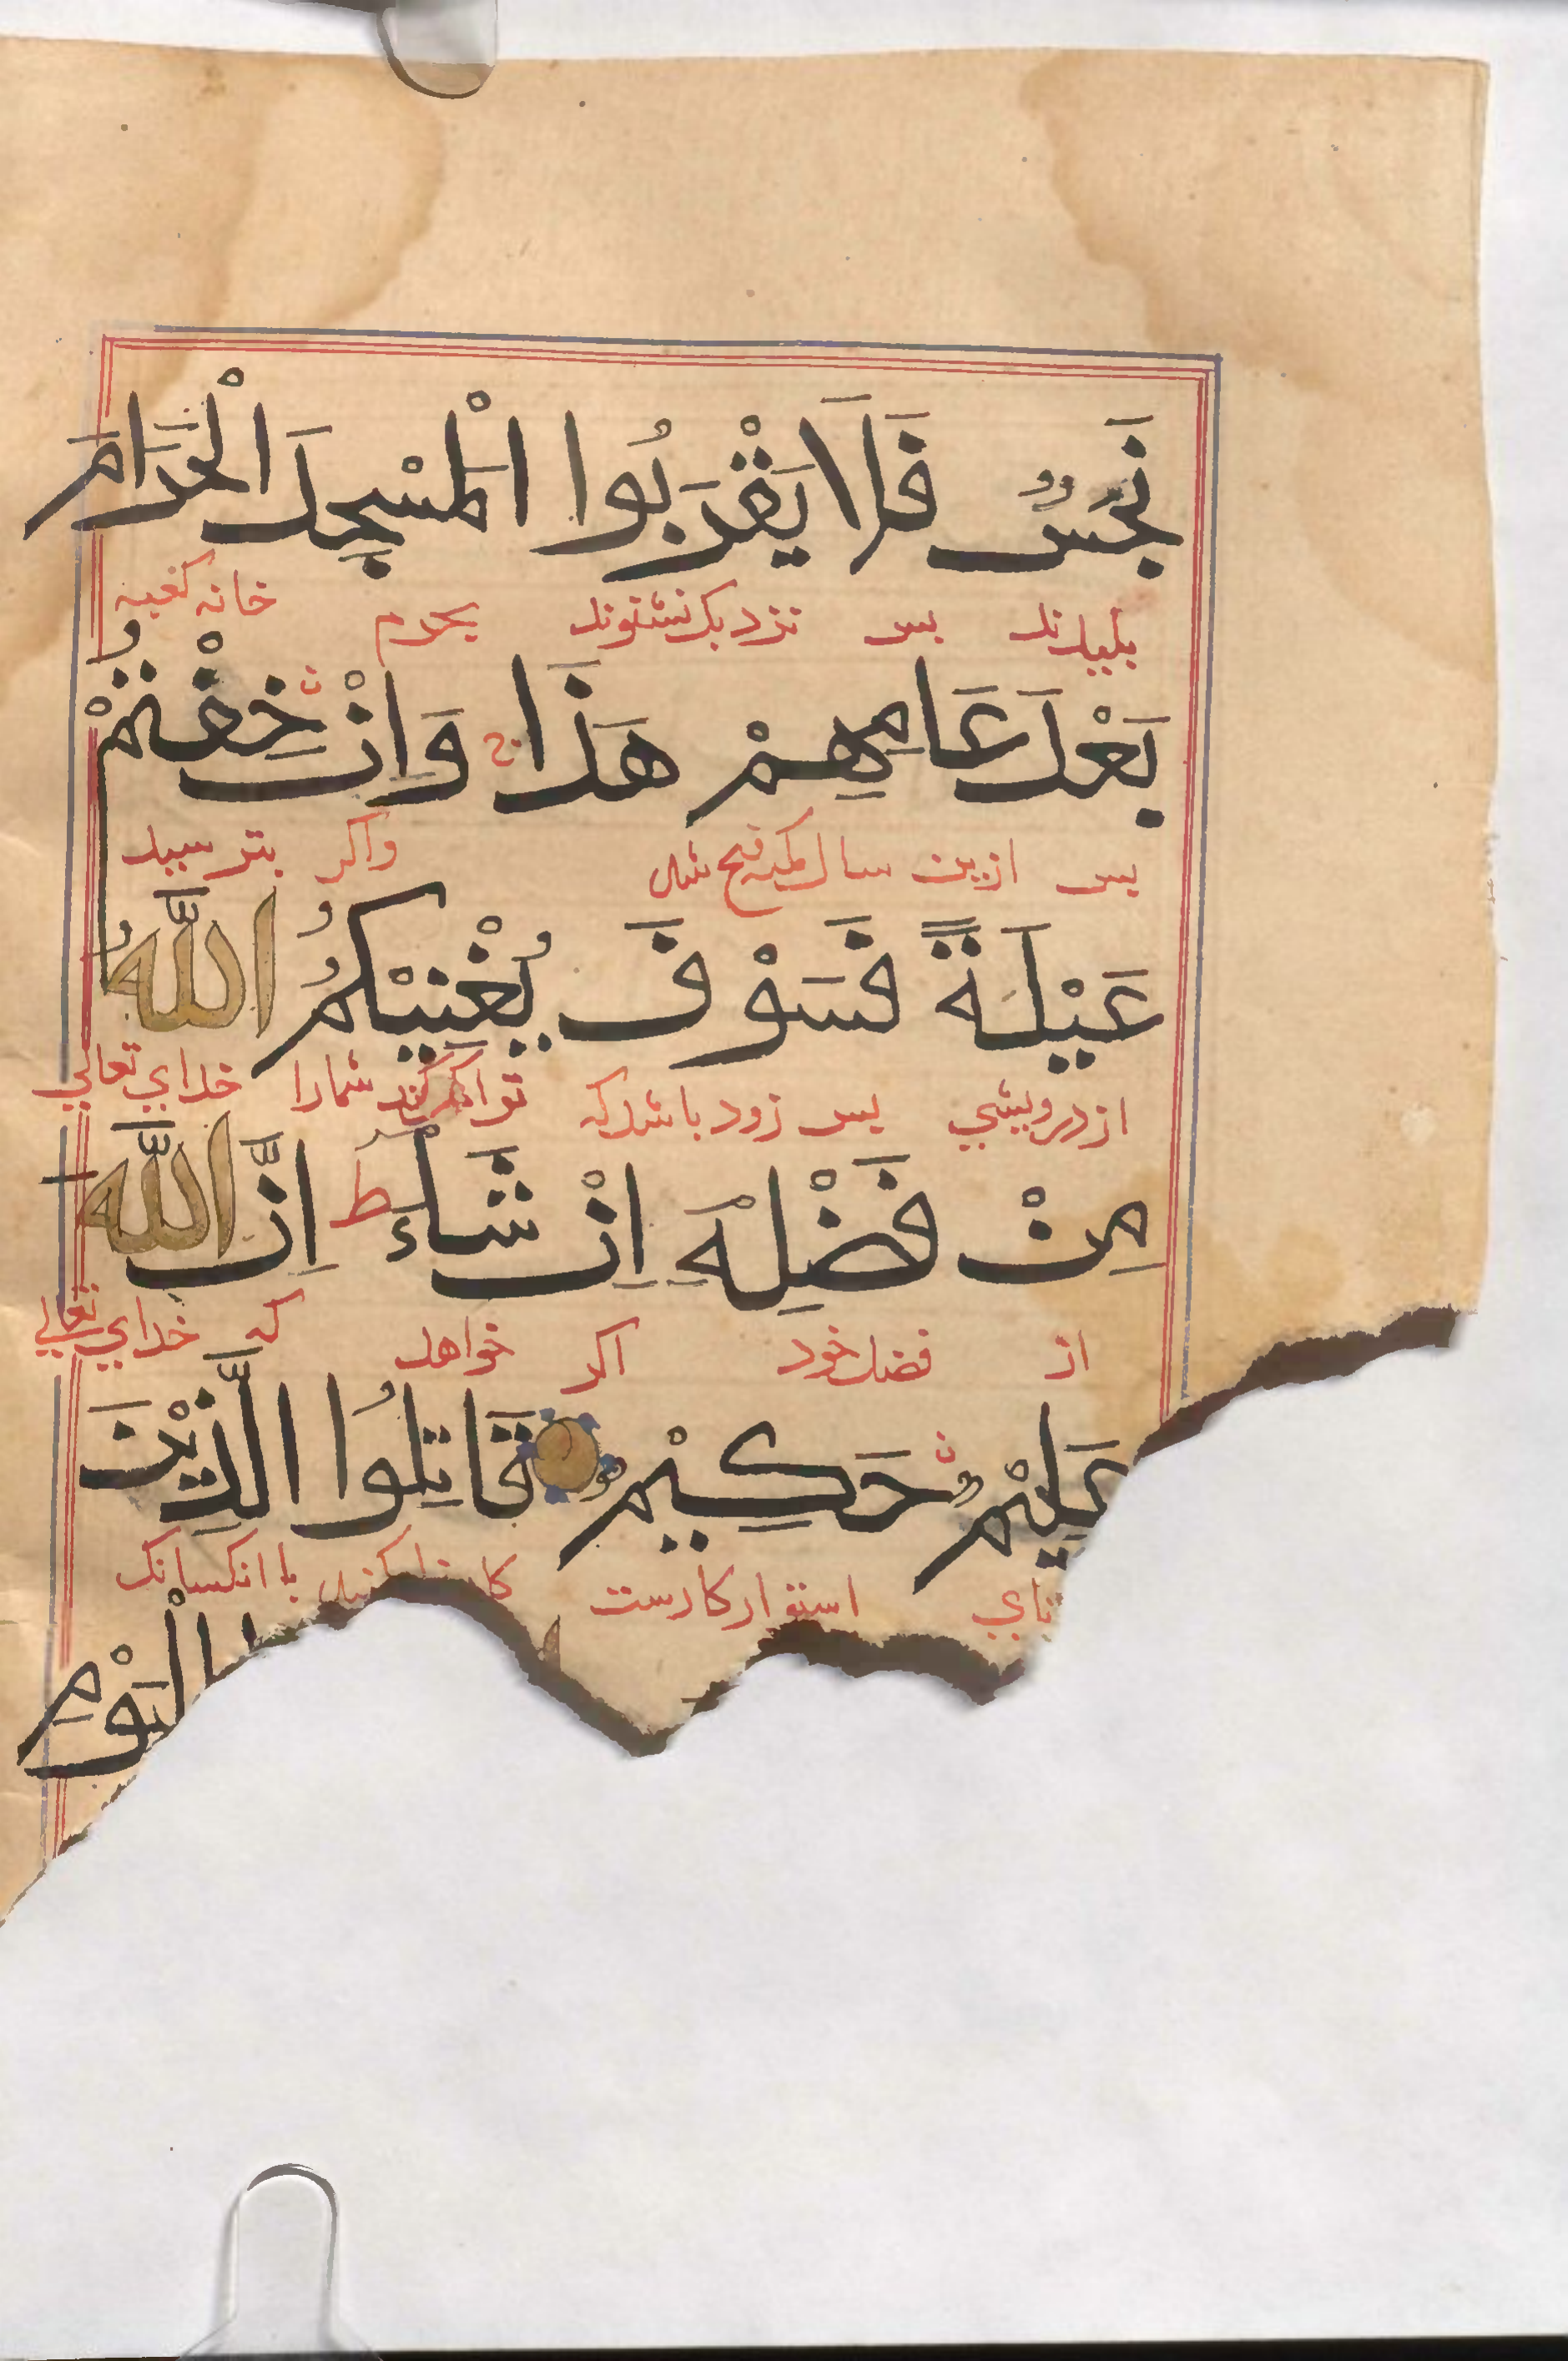 نَجَسٌ فَلَا يَقْرَبُوا الْمَسْجِدَ الْحَرَامَ
پلیدند پس نزدیک نشوند بحرم خانه کعبه
بَعْدَ عَامِهِمْ هَذَا وَاِنْ خِفْتُمْ
پس ازین سال که مکه فتح شد واکر بترسید
عَيْلَةً فَسَوْفَ يُغْنِيْكُمُ اللّٰهُ
از درویشی پس زود باشد که توانکر کند شمارا خدای تعالی
مِنْ فَضْلِهٖ اِنْ شَاءَ ط اِنَّ اللّٰهَ
از فضل خود اکر خواهد که خدای تعالی
عَلِيْمٌ حَكِيْمٌ قَاتِلُوا الَّذِيْنَ
نای استوار کارست با انکسانک
الْيَوْمِ